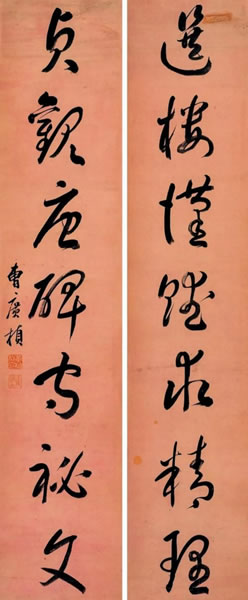 選樓漢賦求精理
貞觀唐碑守祕文
曹廣楨